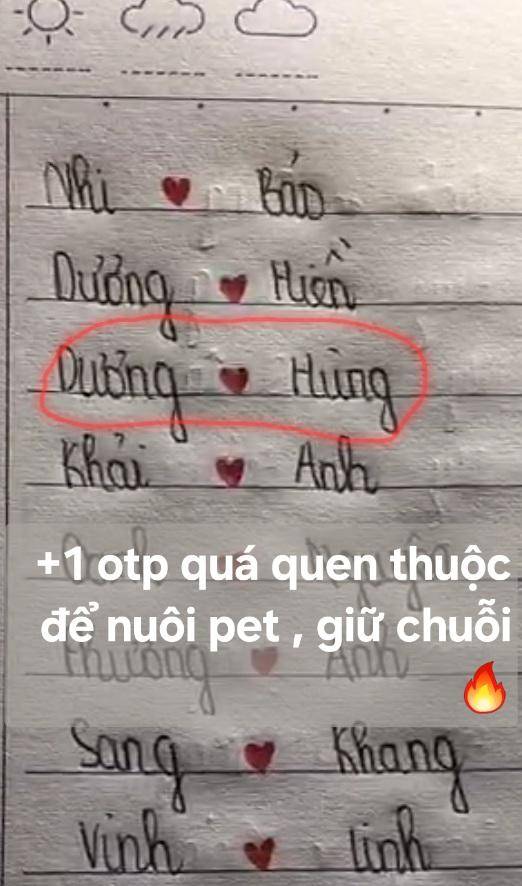 Nhi ❤ Bảo
Dương ❤ Hiền
Dương ❤ Hùng
Khải ❤ Anh
+1 otp quá quen thuộc
để nuôi pet , giữ chuỗi
Phương ❤ Anh
🔥
Sang ❤ Khang
Vinh ❤ Linh